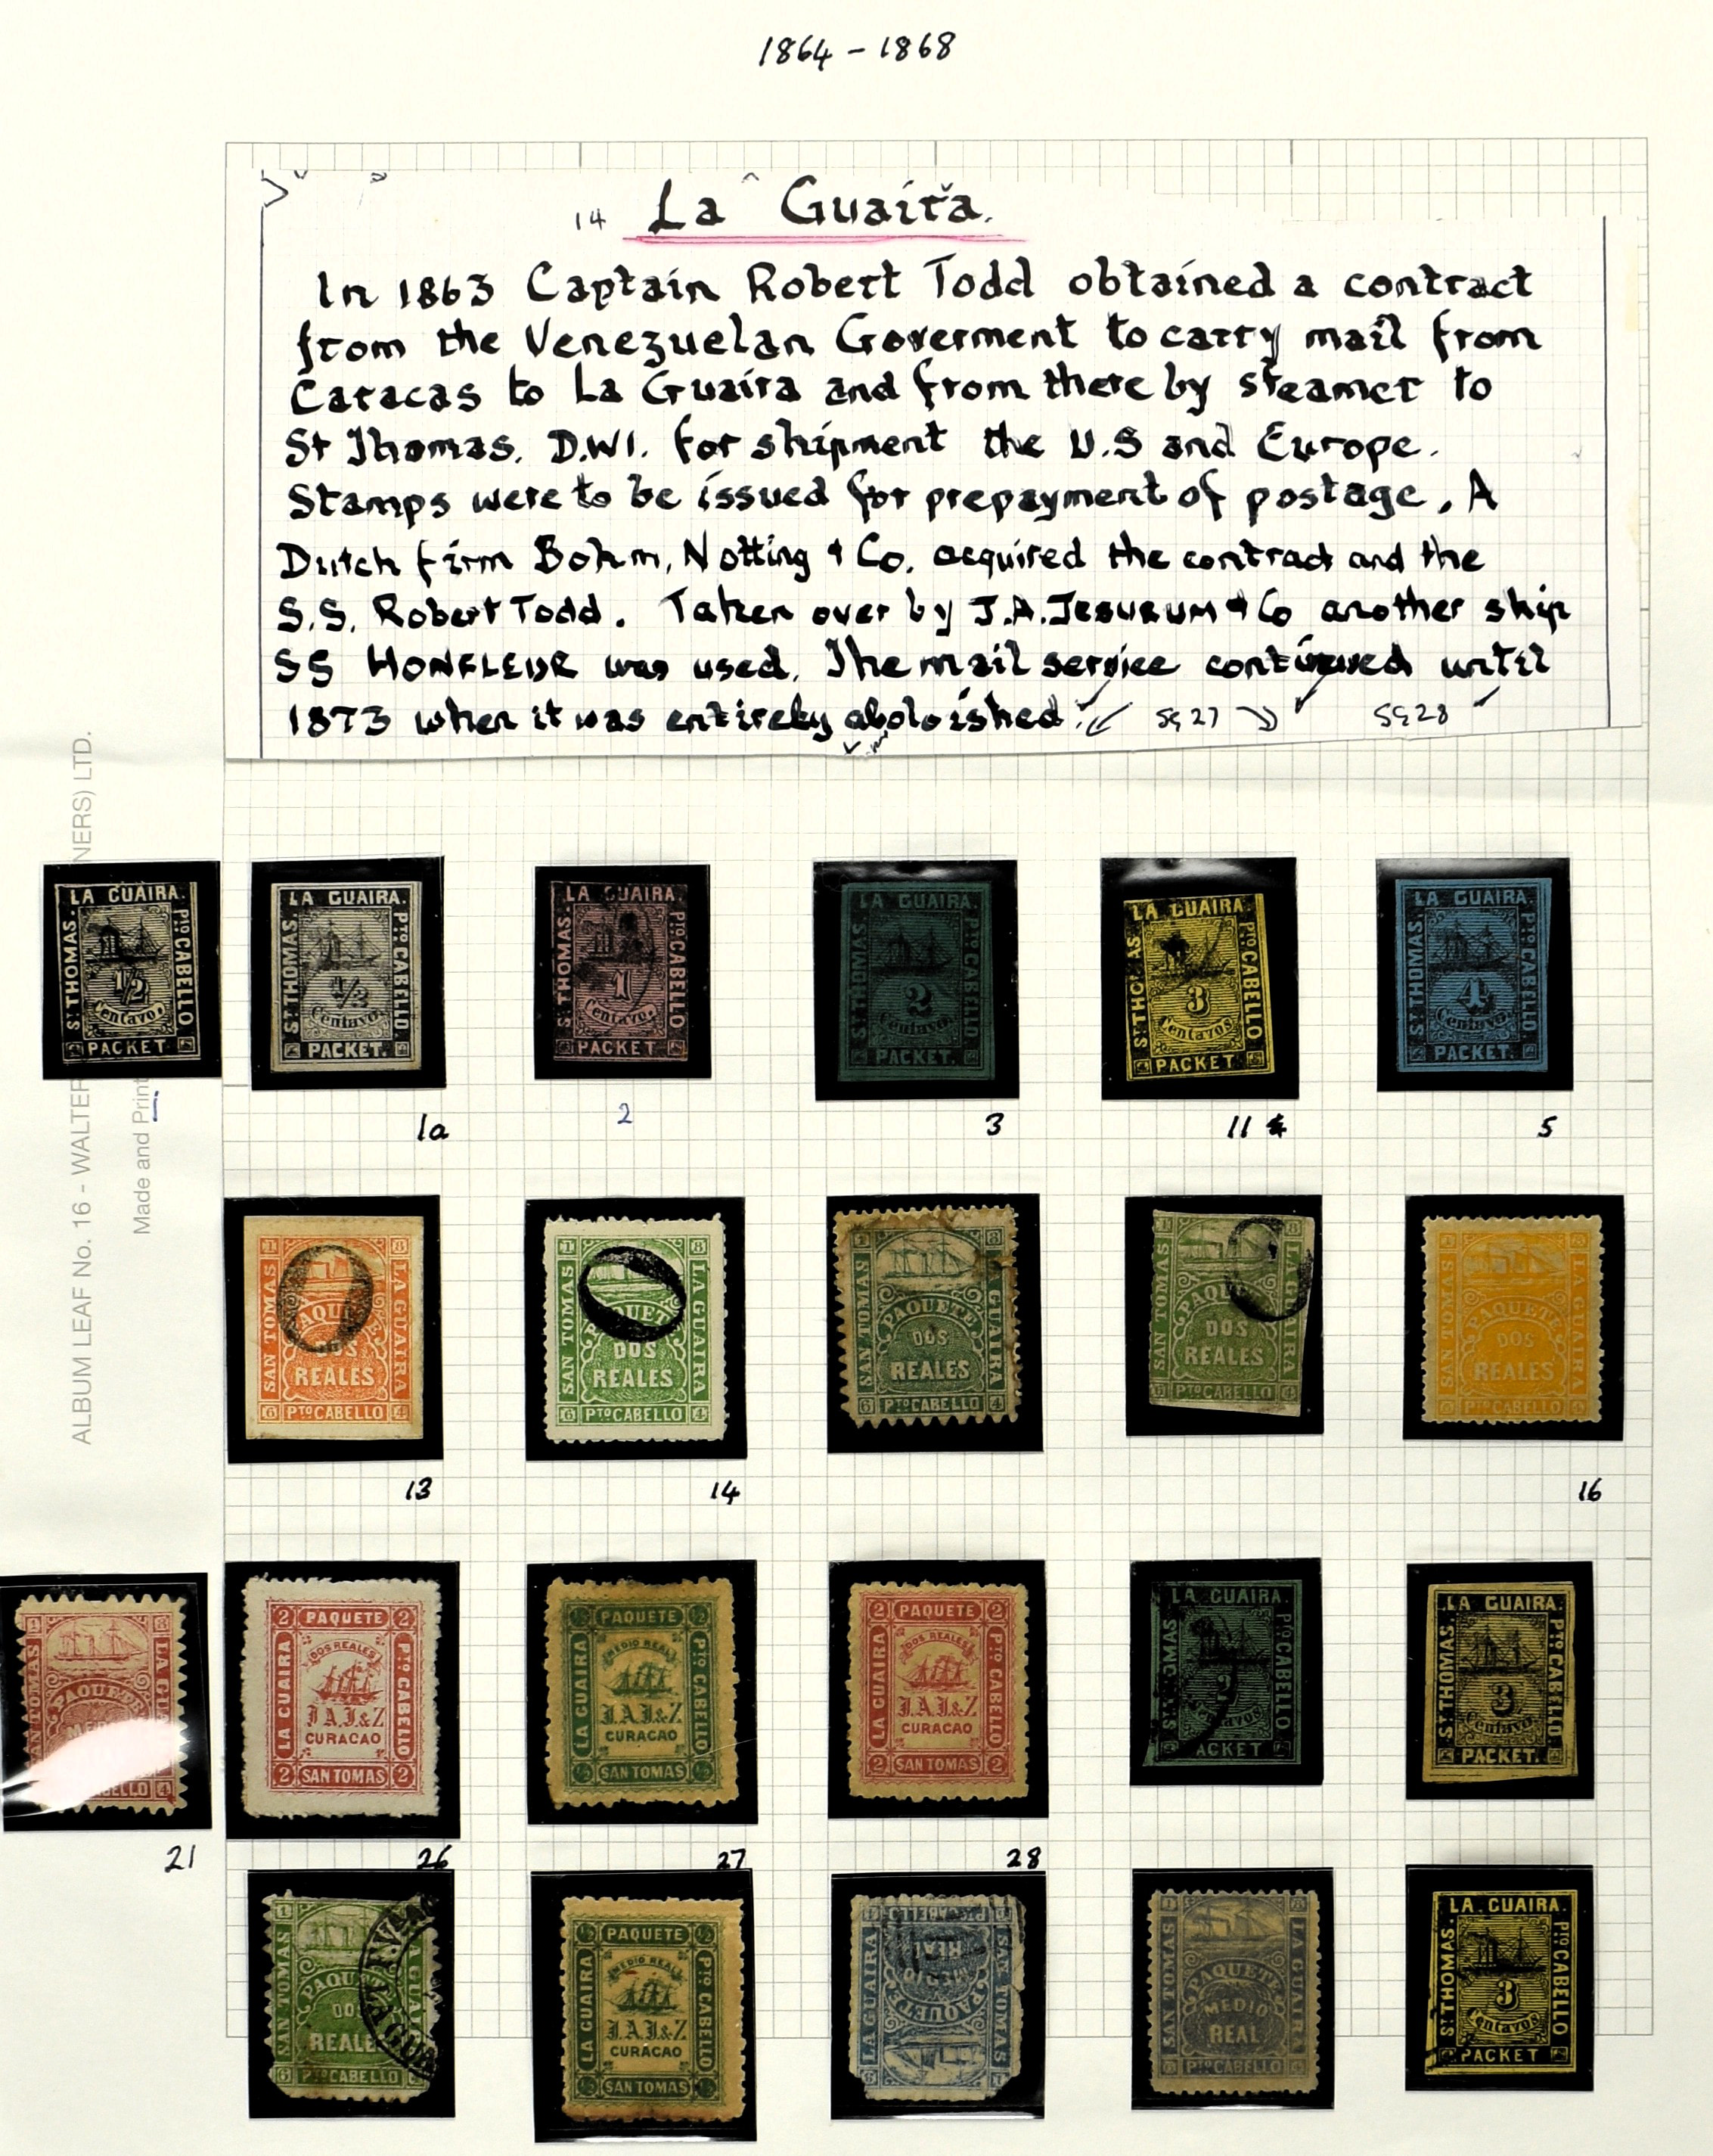 1864 - 1868
14 La Guaira.
In 1863 Captain Robert Todd obtained a contract
from the Venezuelan Goverment to carry mail from
Caracas to La Guaira and from there by steamer to
St Thomas. D.W.I. for shipment the U.S and Europe.
Stamps were to be issued for prepayment of postage. A
Dutch firm Bohm, Notting & Co. acquired the contract and the
S.S. Robert Todd. Taken over by J.A. JESURUM & Co another ship
SS HONFLEUR was used. The mail service continued until
1873 when it was entireky aboloished. SG 27 SG 28
ALBUM LEAF No. 16 - WALTER NERS) LTD.
Made and Print
LA GUAIRA. St THOMAS. Pto CABELLO 1/2 Centavo. PACKET.
LA GUAIRA. St THOMAS. Pto CABELLO 1/2 Centavo. PACKET.
LA GUAIRA St THOMAS. Pto CABELLO 1 Centavo. PACKET
LA GUAIRA St THOMAS. Pto CABELLO 2 Centavo. PACKET.
LA GUAIRA. St THOMAS Pto CABELLO 3 Centavos PACKET
LA GUAIRA. St THOMAS. Pto CABELLO 4 Centavo. PACKET.
1a
2
3
11
5
1 8 SAN TOMAS LA GUAIRA PAQUETE DOS REALES 6 Pto CABELLO 4
1 8 SAN TOMAS LA GUAIRA PAQUETE DOS REALES 6 Pto CABELLO 4
1 8 SAN TOMAS LA GUAIRA PAQUETE DOS REALES 6 Pto CABELLO 4
1 8 SAN TOMAS LA GUAIRA PAQUETE DOS REALES 6 Pto CABELLO 4
1 8 SAN TOMAS LA GUAIRA PAQUETE DOS REALES 6 Pto CABELLO 4
13
14
16
1 8 SAN TOMAS LA GU PAQUETE BELLO 4
2 PAQUETE 2 LA GUAIRA Pto CABELLO DOS REALES J.A.J.&Z CURACAO 2 SAN TOMAS 2
1/2 PAQUETE 1/2 LA GUAIRA Pto CABELLO MEDIO REAL J.A.J.&Z CURACAO 1/2 SAN TOMAS 1/2
2 PAQUETE 2 LA GUAIRA Pto CABELLO DOS REALES J.A.J.&Z CURACAO 2 SAN TOMAS 2
LA GUAIRA. St THOMAS Pto CABELLO 2 Centavos PACKET
LA GUAIRA. St THOMAS. Pto CABELLO 3 Centavo. PACKET.
21
26
27
28
1 SAN TOMAS LA GUAIRA PAQUETE DOS REALES 6 Pto CABELLO
1/2 PAQUETE 1/2 LA GUAIRA Pto CABELLO MEDIO REAL J.A.J.&Z CURACAO 1/2 SAN TOMAS 1/2
SAN TOMAS LA GUAIRA PAQUETE MEDIO REAL Pto CABELLO
1 8 SAN TOMAS LA GUAIRA PAQUETE MEDIO REAL 6 Pto CABELLO 4
LA GUAIRA. St THOMAS. Pto CABELLO 3 Centavos PACKET